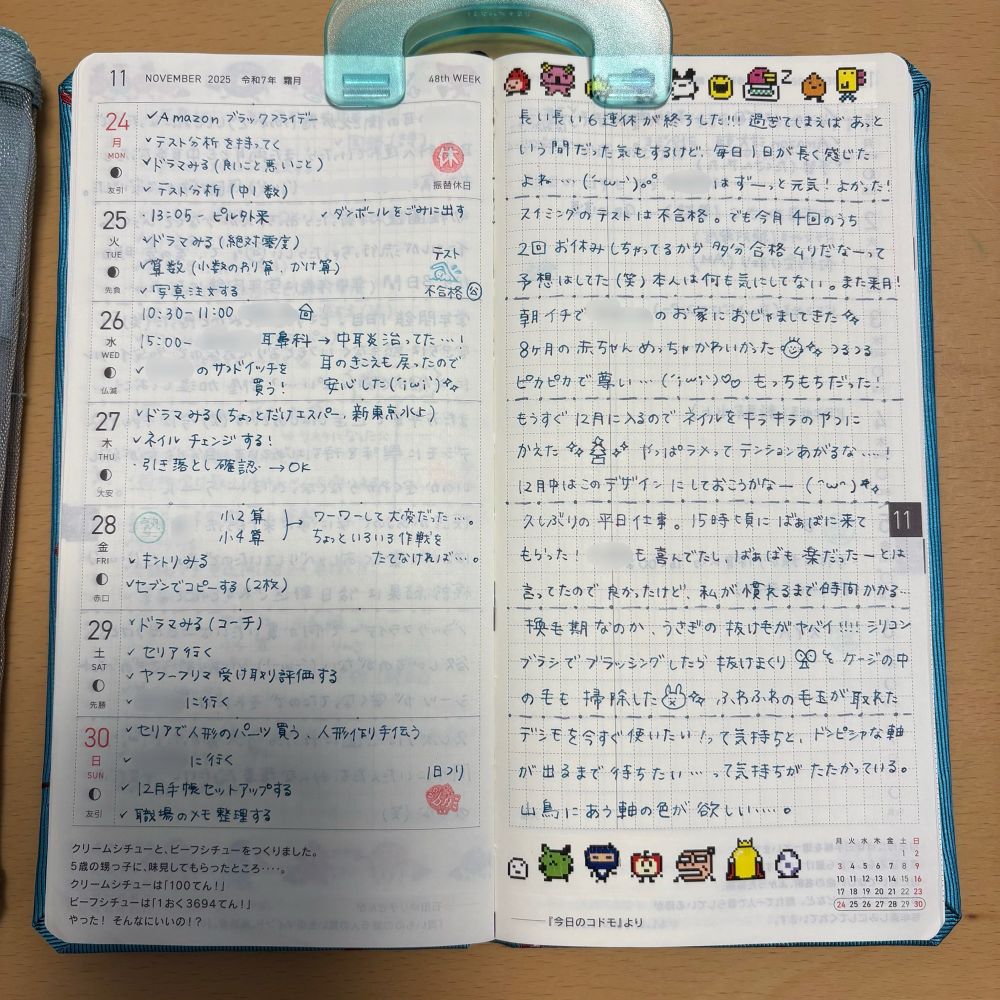 11 NOVEMBER 2025 令和7年 霜月 48th WEEK
24 月 MON 友引
✓Amazon ブラックフライデー
✓テスト分析を持ってく
✓ドラマみる(良いこと悪いこと)
✓テスト分析(中1数)
休
振替休日
25 火 TUE 先負
・13:05- ピル外来 ✓ダンボールをごみに出す
✓ドラマみる(絶対零度)
✓算数(小数のわり算、かけ算)
✓写真注文する
テスト
不合格
26 水 WED 仏滅
10:30-11:00
15:00- 耳鼻科→中耳炎治ってた…!
✓ のサンドイッチを 耳のきこえも戻ったので
買う! 安心した(´;ω;`)
27 木 THU 大安
✓ドラマみる(ちょっとだけエスパー、新東京水上)
✓ネイルチェンジする!
・引き落とし確認 →OK
28 金 FRI 赤口
小2算 ワーワーして大変だった…。
小4算 ちょっといろいろ作戦を
✓キントリみる たてなければ…。
✓セブンでコピーする(2枚)
29 土 SAT 先勝
✓ドラマみる(コーチ)
✓セリア行く
✓ヤフーフリマ受け取り評価する
✓ に行く
30 日 SUN 友引
✓セリアで人形のパーツ買う、人形作り手伝う
✓ に行く
✓12月手帳セットアップする
✓職場のメモ整理する
1日つり
クリームシチューと、ビーフシチューをつくりました。
5歳の甥っ子に、味見してもらったところ‥‥。
クリームシチューは「100てん!」
ビーフシチューは「1おく3694てん!」
やった! そんなにいいの!?
長い長い6連休が終了した!!! 過ぎてしまえばあっと
いう間だった気もするけど、毎日1日が長く感じた
よね…(´-ω-`) はずーっと元気!よかった!
スイミングのテストは不合格。でも今月4回のうち
2回お休みしちゃってるから多分合格ムリだなーって
予想はしてた(笑)本人は何も気にしてない。また来月!
朝イチで のお家におじゃましてきた
8ヶ月の赤ちゃんめっちゃかわいかった つるつる
ピカピカで尊い…(´;ω;`)♡ もっちもちだった!
もうすぐ12月に入るのでネイルをキラキラのやつに
かえた やっぱラメってテンションあがるな…!
12月中はこのデザインにしておこうかなー(´ω`)
久しぶりの平日仕事。15時頃にばぁばに来て
もらった! も喜んでたし、ばぁばも楽だったーとは
言ってたので良かったけど、私が慣れるまで時間かかる…
換毛期なのか、うさぎの抜け毛がヤバイ!!!! シリコン
ブラシでブラッシングしたら抜けまくり そケージの中
の毛も掃除した ふわふわの毛玉が取れた
デシモを今すぐ使いたい!って気持ちと、ドンピシャな軸
が出るまで待ちたい…って気持ちがたたかっている。
山鳥にあう軸の色が欲しい…。
11
月 火 水 木 金 土 日
1 2
3 4 5 6 7 8 9
10 11 12 13 14 15 16
17 18 19 20 21 22 23
24 25 26 27 28 29 30
──『今日のコドモ』より